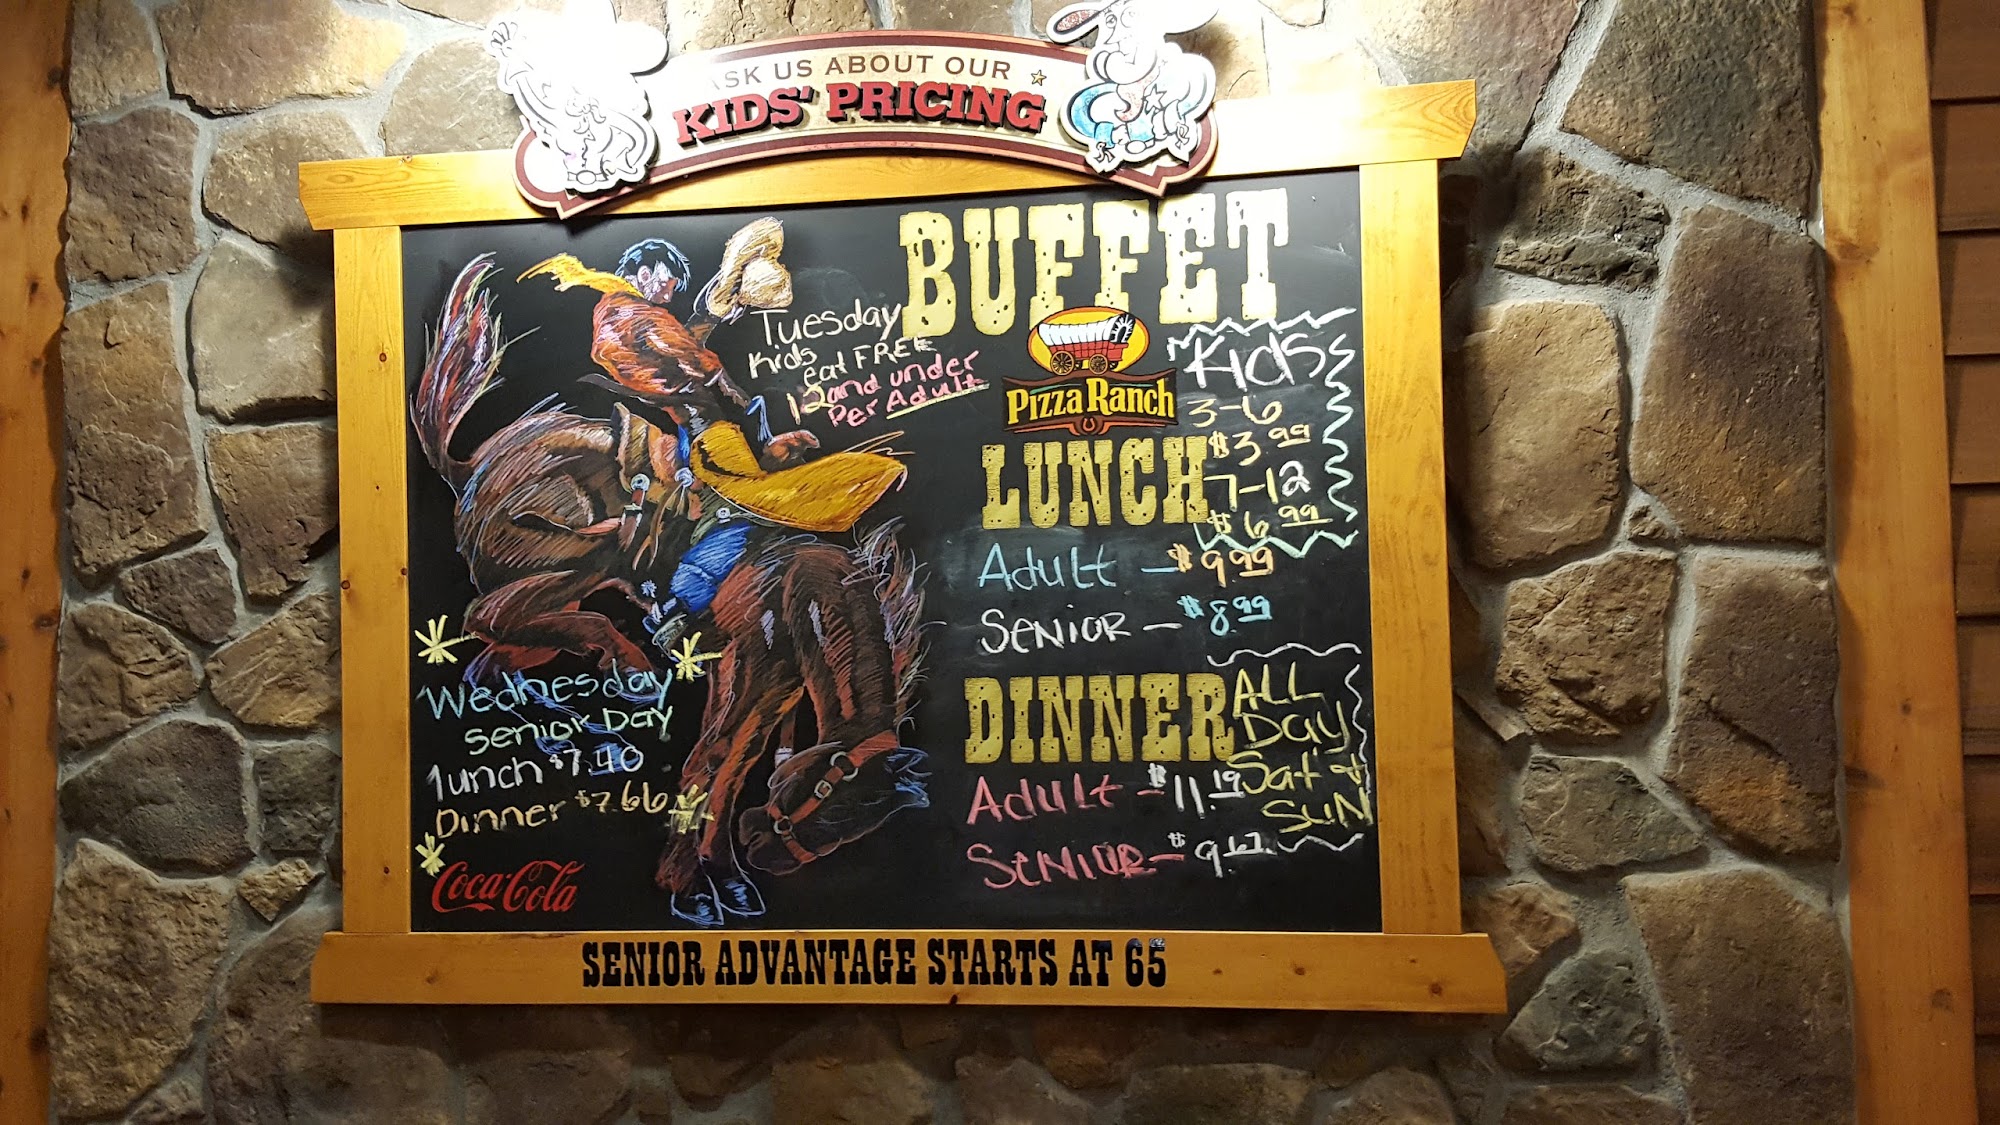 ASK US ABOUT OUR
KIDS' PRICING
BUFFET
Tuesday
Kids
eat FREE
12 and under
Per Adult
Pizza Ranch
Kids
3-6
$3.99
7-12
$6.99
LUNCH
Adult - $9.99
Senior - $8.99
DINNER
Adult - $11.19
Senior - $9.67
ALL
Day
Sat &
SUN
Wednesday
Senior Day
lunch $7.40
Dinner $7.66
Coca-Cola
SENIOR ADVANTAGE STARTS AT 65